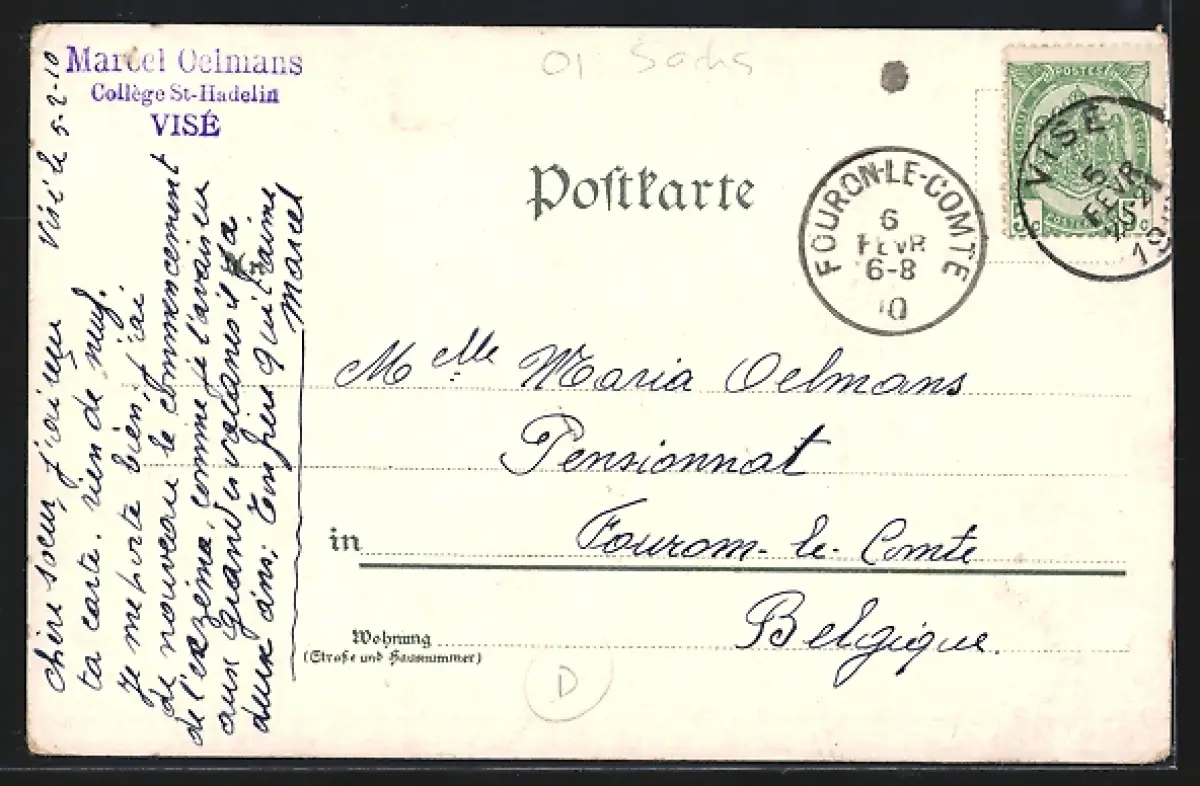 Marcel Oelmans
Collège St-Hadelin
VISÉ
01 Sachs
Postkarte
POSTES
VISÉ
5
FEVR
19
FOURON-LE-COMTE
6
FEVR
6-8
10
Visé le 5-2-10
Chère soeur, j'ai reçu
ta carte. rien de neuf.
Je me porte bien, j'ai
de nouveau le commencement
de l'exzéma, comme je l'avais eu
aux grandes vacances il y a
deux ans. Ton frère qui t'aime
Marcel
Melle Maria Oelmans
Pensionnat
in Fouron-le-Comte
Belgique.
Wohnung
(Straße und Hausnummer)
D